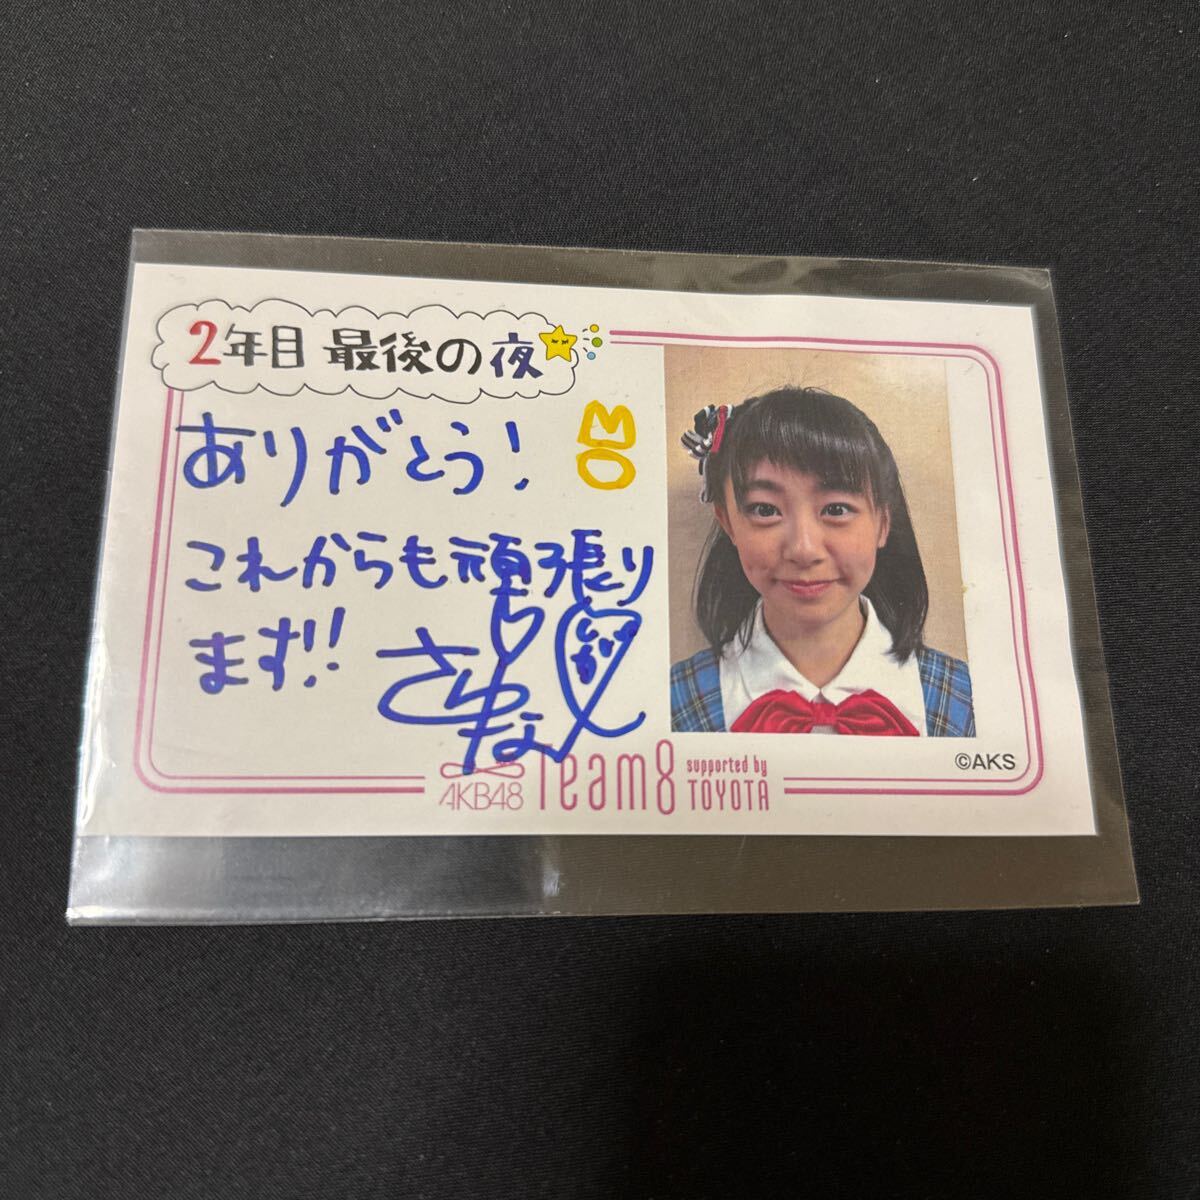 2年目 最後の夜
ありがとう!
これからも頑張り
ます!!
さゆな
しが
AKB48 Team8 supported by TOYOTA
©AKS